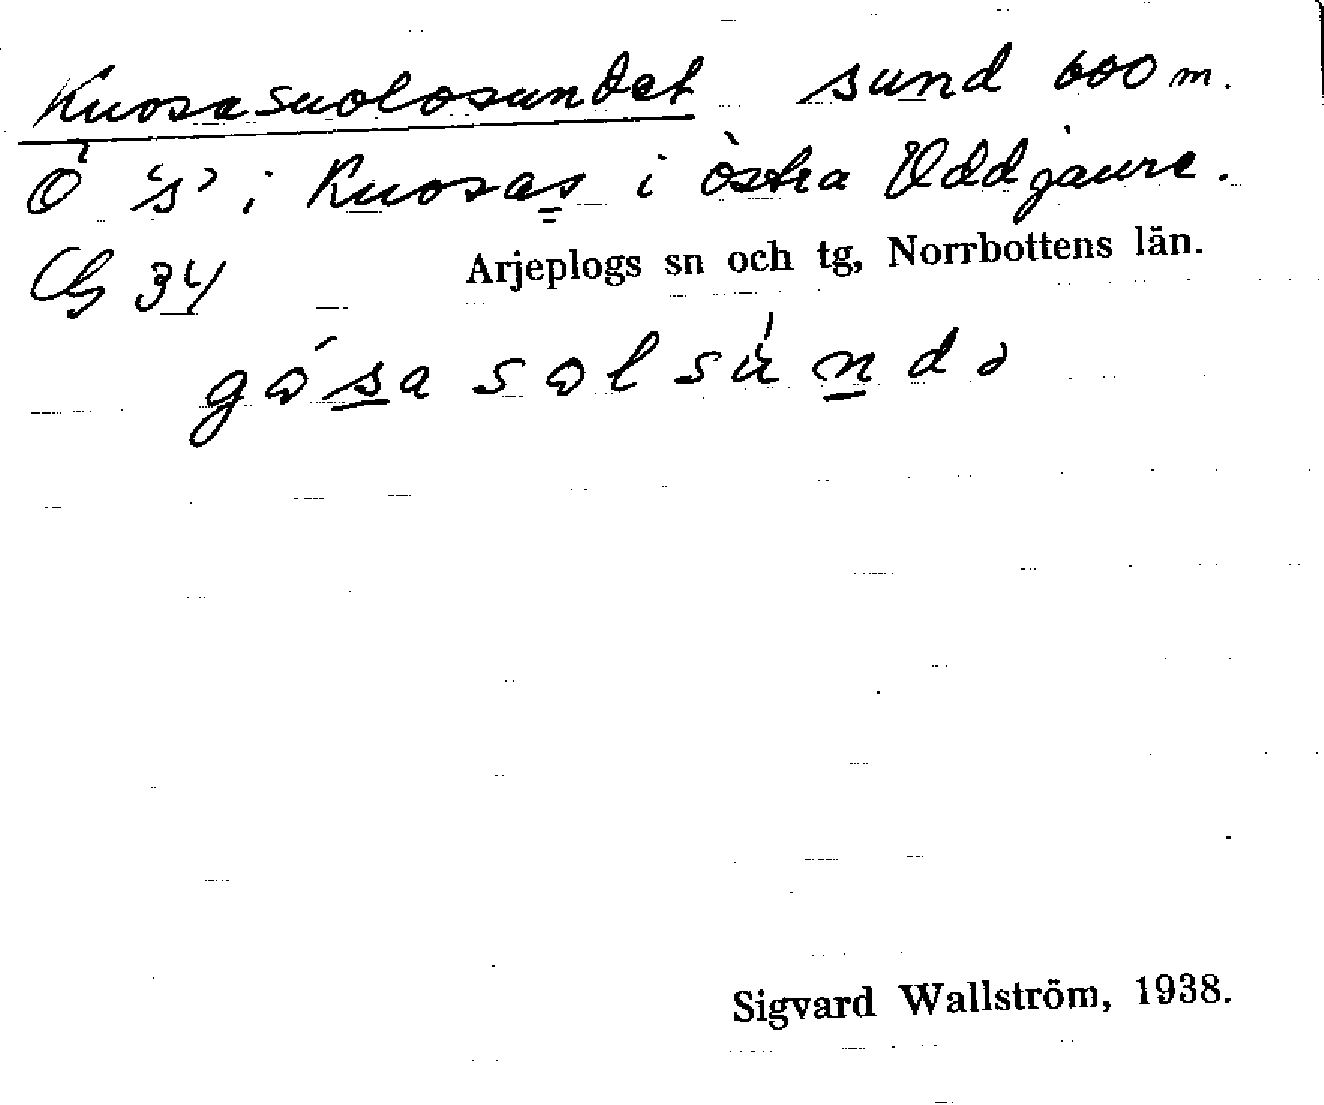 Kuosasuolosundet sund 600 m.
Ö 's' i Kuosas i östra Uddjaure.
Cb 34 Arjeplogs sn och tg, Norrbottens län.
gósa sol súndə
Sigvard Wallström, 1938.